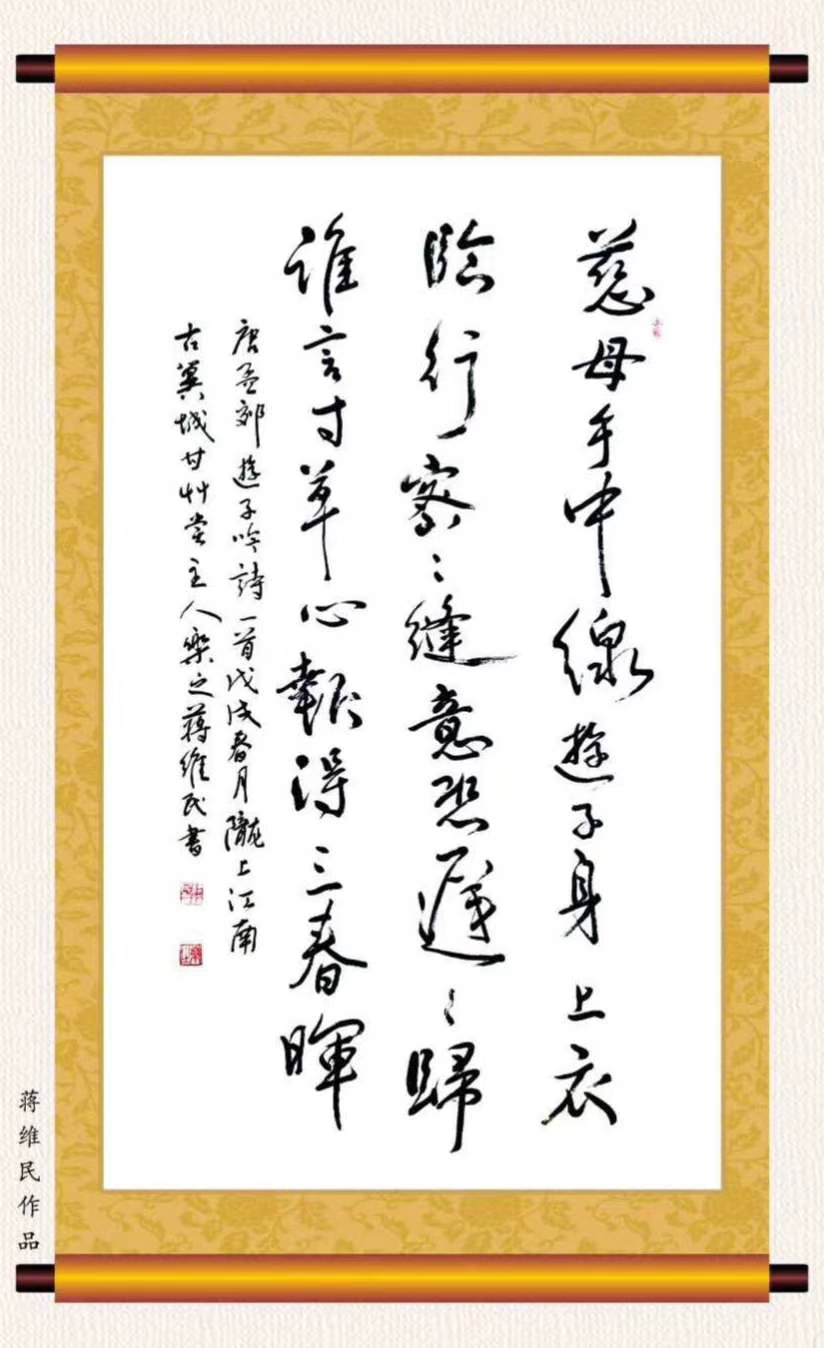 慈母手中線遊子身上衣
臨行密〻縫意恐遲〻歸
誰言寸草心報得三春暉
唐孟郊遊子吟詩一首戊戌春月隴上江南
古冀城甘艸堂主人樂之蔣維民書
蒋维民作品